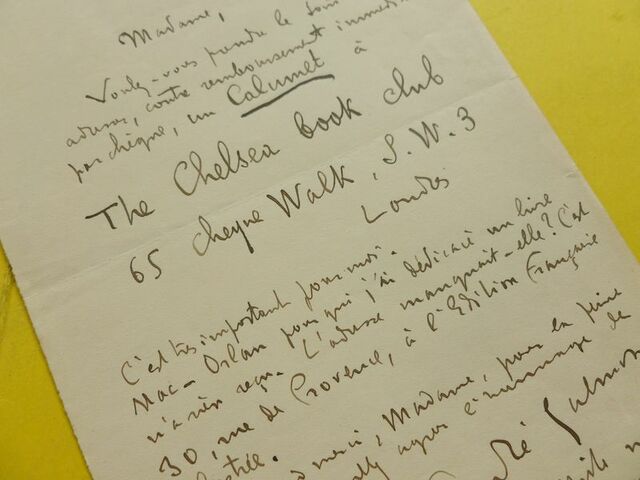 Madame,
Voulez-vous prendre le soin
adresser, contre remboursement immédia
par chèque, un Calumet à
The Chelsea book club
65 cheyne Walk, S.W.3
Londres
C'est très important pour moi.
Mac-Orlan pour qui j'ai dédicacé un livre
n'a rien reçu. L'adresse manquait-elle? C'est
30, rue de Provence, à l'Edition Française
illustrée.
merci, Madame, pour la peine
agréer l'hommage de
André Salmon